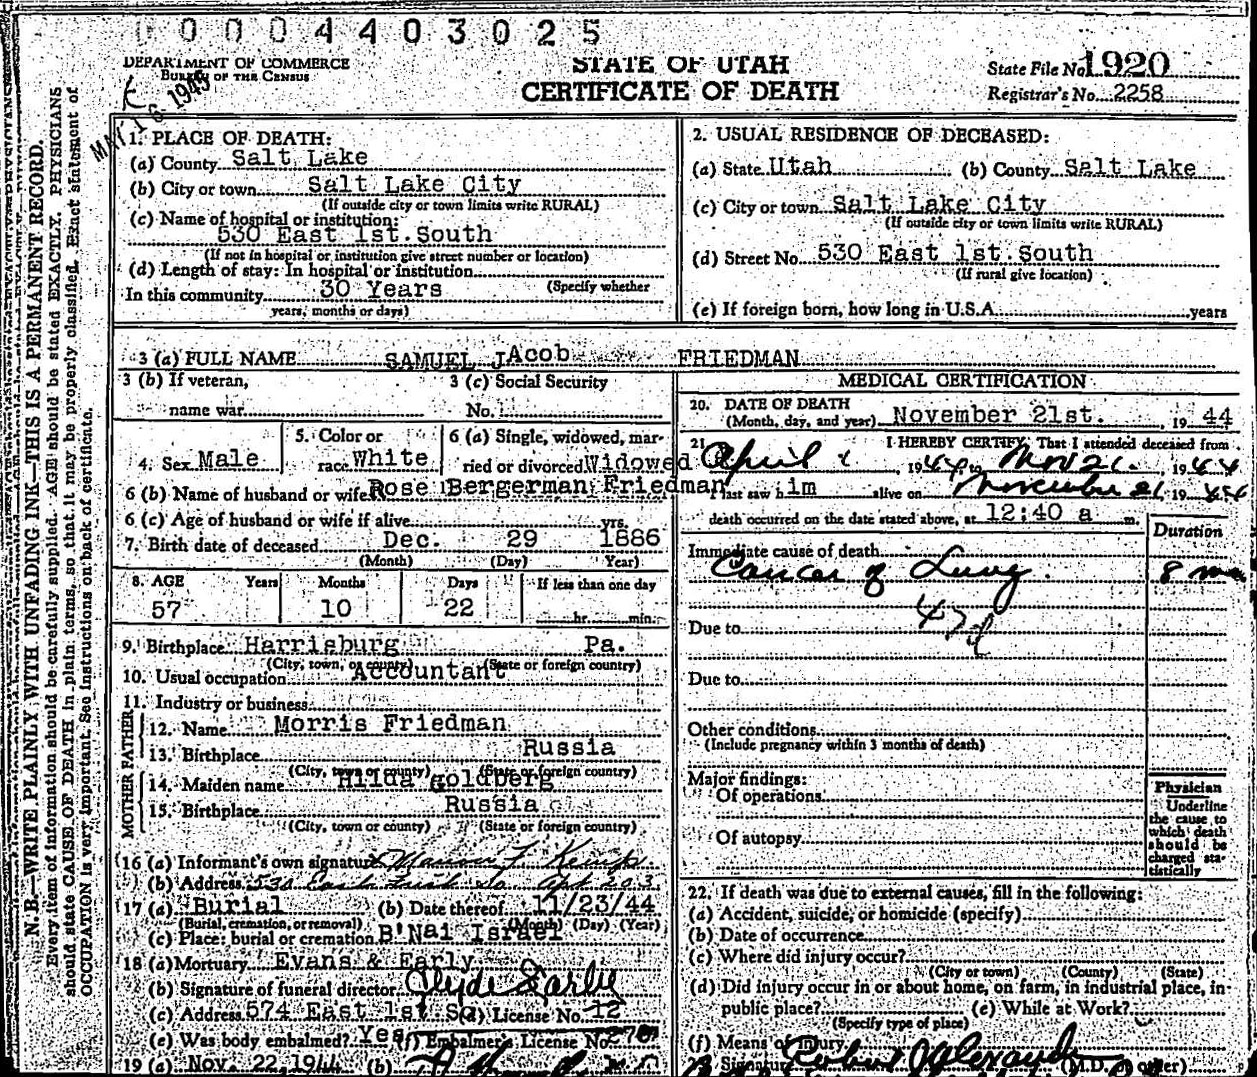 0004403025
DEPARTMENT OF COMMERCE
BUREAU OF THE CENSUS
MAY 16 1945
STATE OF UTAH
CERTIFICATE OF DEATH
State File No. 1920
Registrar's No. 2258
N. B.—WRITE PLAINLY WITH UNFADING INK—THIS IS A PERMANENT RECORD.
Every item of information should be carefully supplied. AGE should be stated EXACTLY. PHYSICIANS
should state CAUSE OF DEATH in plain terms, so that it may be properly classified. Exact statement of
OCCUPATION is very important. See instructions on back of certificate.
1. PLACE OF DEATH:
(a) County Salt Lake
(b) City or town Salt Lake City
(If outside city or town limits write RURAL)
(c) Name of hospital or institution:
530 East 1st. South
(If not in hospital or institution give street number or location)
(d) Length of stay: In hospital or institution
In this community 30 Years (Specify whether
years, months or days)
2. USUAL RESIDENCE OF DECEASED:
(a) State Utah (b) County Salt Lake
(c) City or town Salt Lake City
(If outside city or town limits write RURAL)
(d) Street No. 530 East 1st. South
(If rural give location)
(e) If foreign born, how long in U.S.A. years
3 (a) FULL NAME SAMUEL JAcob FRIEDMAN
3 (b) If veteran,
name war
3 (c) Social Security
No.
4. Sex Male
5. Color or
race White
6 (a) Single, widowed, mar-
ried or divorced Widowed
6 (b) Name of husband or wife Rose Bergerman Friedman
6 (c) Age of husband or wife if alive yrs.
7. Birth date of deceased Dec. 29 1886
(Month) (Day) Year)
8. AGE Years Months Days If less than one day
57 10 22 hr. min.
9. Birthplace Harrisburg Pa.
(City, town, or county) (State or foreign country)
10. Usual occupation Accountant
11. Industry or business
FATHER
12. Name Morris Friedman
13. Birthplace Russia
(City, town or county) (State or foreign country)
MOTHER
14. Maiden name Hilda goldberg
15. Birthplace Russia
(City, town or county) (State or foreign country)
16 (a) Informant's own signature
(b) Address 530 East First So. Apt 203
17 (a) Burial (b) Date thereof 11/23/44
(Burial, cremation, or removal) (Month) (Day) (Year)
(c) Place: burial or cremation B'Nai Israel
18 (a) Mortuary Evans & Early
(b) Signature of funeral director Clyde Early
(c) Address 574 East 1st So (d) License No. 12
(e) Was body embalmed? Yes (f) Embalmer's License No.
19 (a) Nov. 22, 1944 (b)
MEDICAL CERTIFICATION
20. DATE OF DEATH
(Month, day, and year) November 21st. 19 44
21. I HEREBY CERTIFY, That I attended deceased from
April 1944 to Nov 21, 1944
I last saw him alive on November 21 1944
death occurred on the date stated above, at 12:40 a m.
Duration
Immediate cause of death
Cancer of Lung 8 mo
47d
Due to
Due to
Other conditions
(Include pregnancy within 3 months of death)
Major findings:
Of operations
Of autopsy
Physician
Underline
the cause to
which death
should be
charged sta-
tistically
22. If death was due to external causes, fill in the following:
(a) Accident, suicide, or homicide (specify)
(b) Date of occurrence
(c) Where did injury occur?
(City or town) (County) (State)
(d) Did injury occur in or about home, on farm, in industrial place, in
public place? (e) While at Work?
(Specify type of place)
(f) Means of injury
Signature Robert J Alexander (M.D. or other)